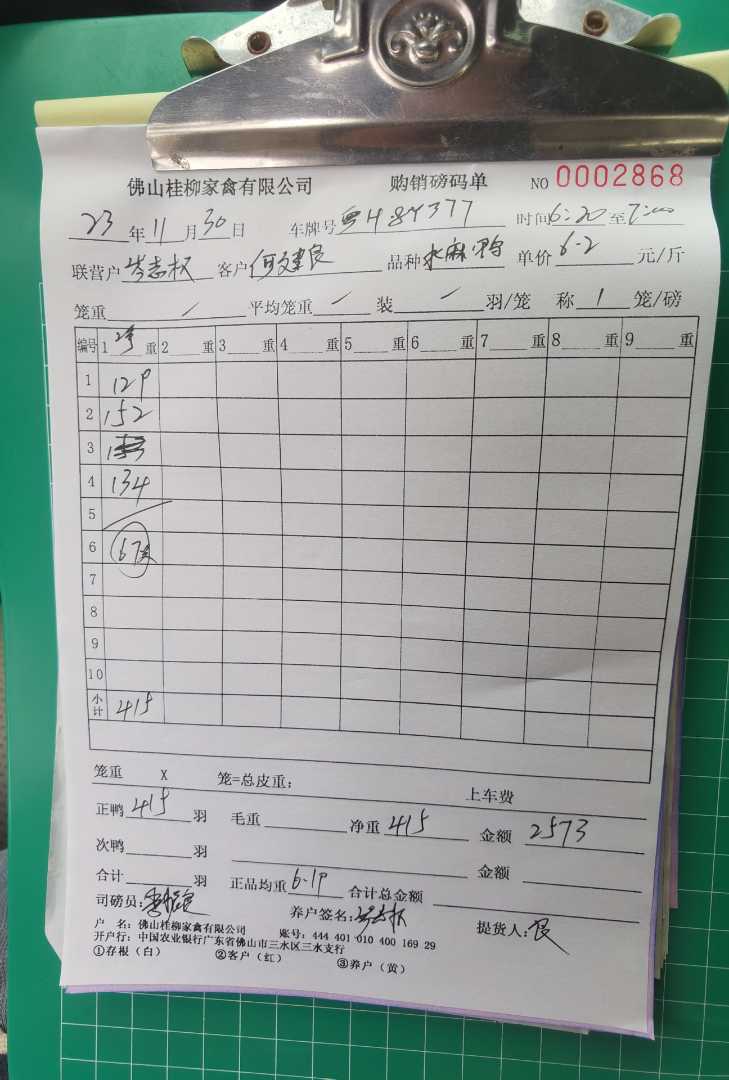 佛山桂柳家禽有限公司 购销磅码单 NO 0002868
23年11月30日 车牌号粤H8Y377 时间6:20至7:00
联营户岑志权 客户何建良 品种水麻鸭 单价6.2元/斤
笼重 / 平均笼重 / 装 / 羽/笼 称 1 笼/磅
编号 1 重 2 重 3 重 4 重 5 重 6 重 7 重 8 重 9 重
1 129
2 152
3
4 134
5
6 67
7
8
9
10
小计 415
笼重 X 笼=总皮重: 上车费
正鸭415羽 毛重 净重415 金额2573
次鸭 羽 金额
合计 羽 正品均重6.19 合计总金额
司磅员: 养户签名:岑志权 提货人:良
户 名: 佛山桂柳家禽有限公司 账号: 444 401 010 400 169 29
开户行: 中国农业银行广东省佛山市三水区三水支行
①存根(白) ②客户(红) ③养户(黄)